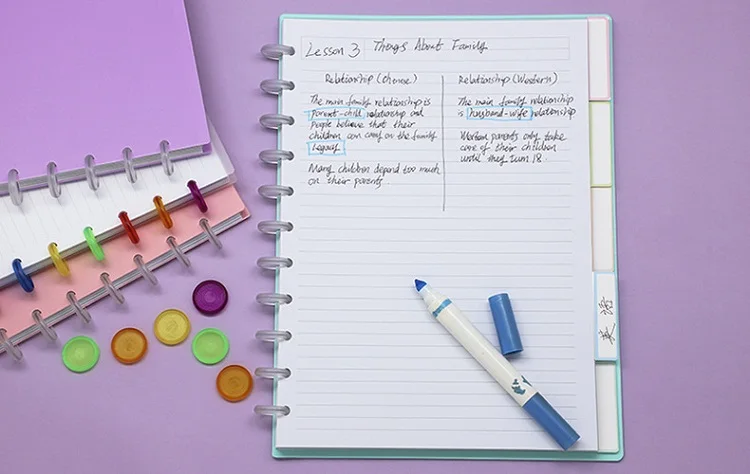 Lesson 3 Things About Family
Relationship (Chinese)
The main family relationship is
parent-child relationship and
people believe that their
children can carry on the family
legacy.
Many children depend too much
on their parents
Relationship (Western)
The main family relationship
is husband-wife relationship
Western parents only take
care of their children
until they turn 18.
英语